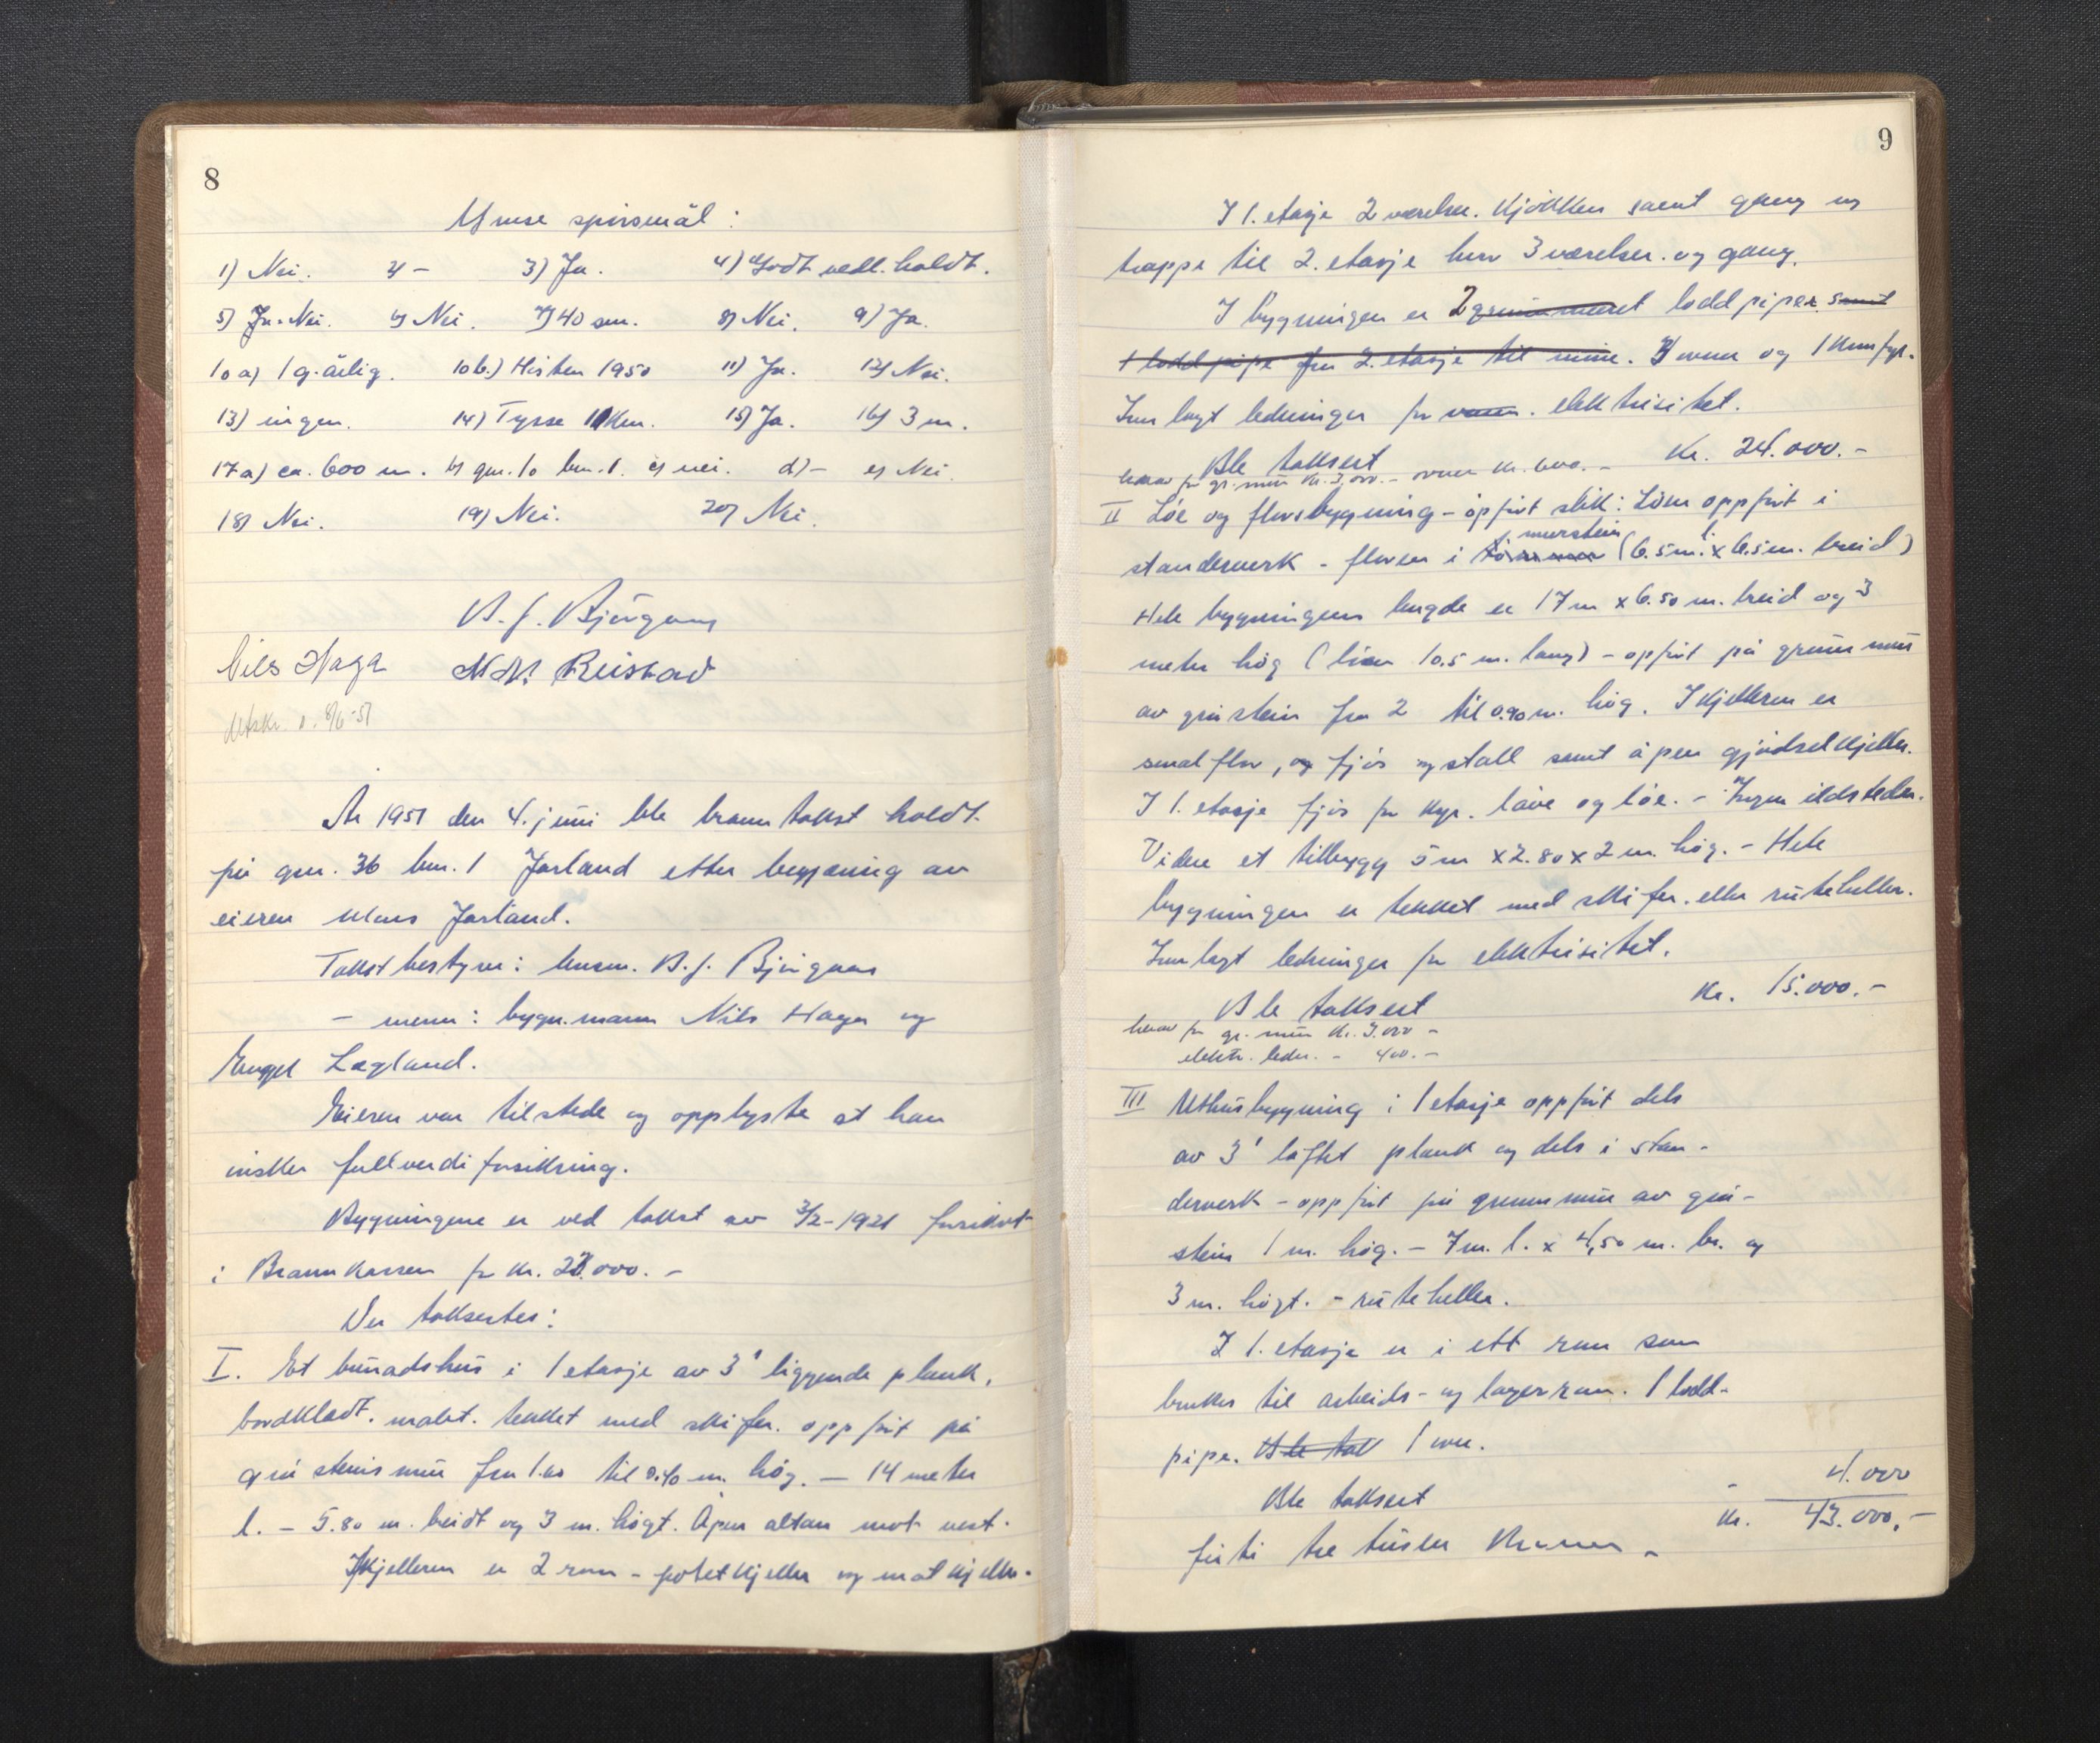 8
Ymse spörsmål:
1) Nei. 2) – 3) Ja. 4) Godt vedl. holdt.
5) Ja. Nei. 6) Nei. 7) 40 sm. 8) Nei. 9) Ja.
10 a) 1 g. årlig. 10 b.) Hösten 1950 11) Ja. 12) Nei.
13) ingen. 14) Tysse 11 km. 15) Ja. 16) 3 m.
17 a) ca. 600 m. b) gnr. 10 bnr. 1. c) nei. d) – e) Nei
18) Nei. 19) Nei. 20) Nei.
B. J. Björgum
Nils Haga N. N. Reistad
Utskr. d. 8/6-51
År 1951 den 4. juni ble branntakst holdt
på gnr. 36 bnr. 1 Jarland etter begjæring av
eieren Mons Jarland.
Takstbestyrer: lensm. B. J. Björgum
– menn: bygn.mann Nils Haga og
Engel Lægland.
Eieren var tilstede og opplyste at han
önsker fullverdiforsikring.
Bygningene er ved takst av 3/2-1921 forsikret
i Brannkassen for kr. 27.000. –
Der takseertes:
I. Et bunadshus i 1 etasje av 3" liggende plank,
bordkledt. malt. tekket med skifer. oppfört på
gråsteinsmur fra 1.60 til 0.40 m. hög. – 14 meter
l. – 5.80 m. breidt og 3 m. högt. Åpen altan mot vest.
I kjelleren er 2 rom – potetkjeller og matkjeller.
9
I 1. etasje 2 værelser. kjökken samt gang og
trappe til 2. etasje hvor 3 værelser. og gang.
I bygningen er 2 grunnmuret loddpiper. samt
1 loddpipe fra 2. etasje til mure. 3 ovner og 1 komfyr.
Innlagt ledninger for vann. elektrisitet.
Ble taksert kr. 24.000. –
herav for gr. mur kr. 3.000. – ovner kr. 600. –
II Löe og florsbygning – oppfört slik: Löen oppfört i
standerverk – floren i murstein (6.5 m. l. x 6.5 m. breid)
Hele bygningens lengde er 17 m x 6.50 m. breid og 3
meter hög (löen 10.5 m. lang) – oppfört på grunnmur
av gråstein fra 2 til 0.90 m. hög. I kjelleren er
smalflor, og fjös og stall samt åpen gjödselkjeller.
I 1. etasje fjös for kyr. låve og löe. – Ingen ildsteder.
Videre et tilbygg 5 m x 2.80 x 2 m. hög. – Hele
bygningen er tekket med skifer. eller ruteheller.
Innlagt ledninger for elektrisitet.
Ble taksert kr. 15.000. –
herav for gr. mur kr. 3.000 –
elektr. ledn. – 400. –
III Uthusbygning i 1 etasje oppfört dels
av 3" laftet plank og dels i stan-
derverk – oppfört på grunnmur av grå-
stein 1 m. hög. – 7 m. l. x 4,50 m. br. og
3 m. högt. – ruteheller.
I 1. etasje er i ett rom som
brukes til arbeids- og lagerrom. 1 lodd-
pipe. Ble tak 1 ovn.
Ble taksert – 4.000
kr. 43.000, –
förti tre tusen kroner –